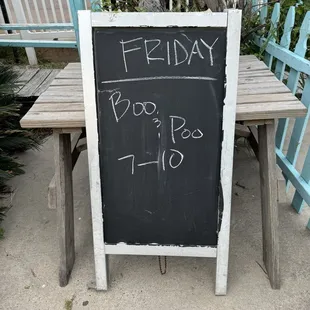 FRIDAY
Boo
& Poo
7-10